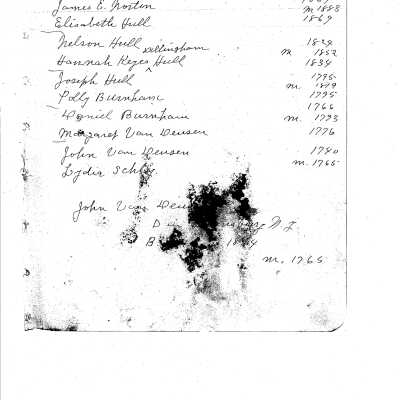 James E. Norton
m. 1888
Elisabeth Hull 1869
Nelson Hull 1824
Kellingham m. 1852
Hannah Keyes Hull 1834
Joseph Hull 1795
m. 1819
Polly Burnham 1795
Daniel Burnham 1766
m. 1793
Margaret Van Deusen 1776
John Van Deusen 1740
m. 1765
Lydia
John Van
D
B
m. 1765